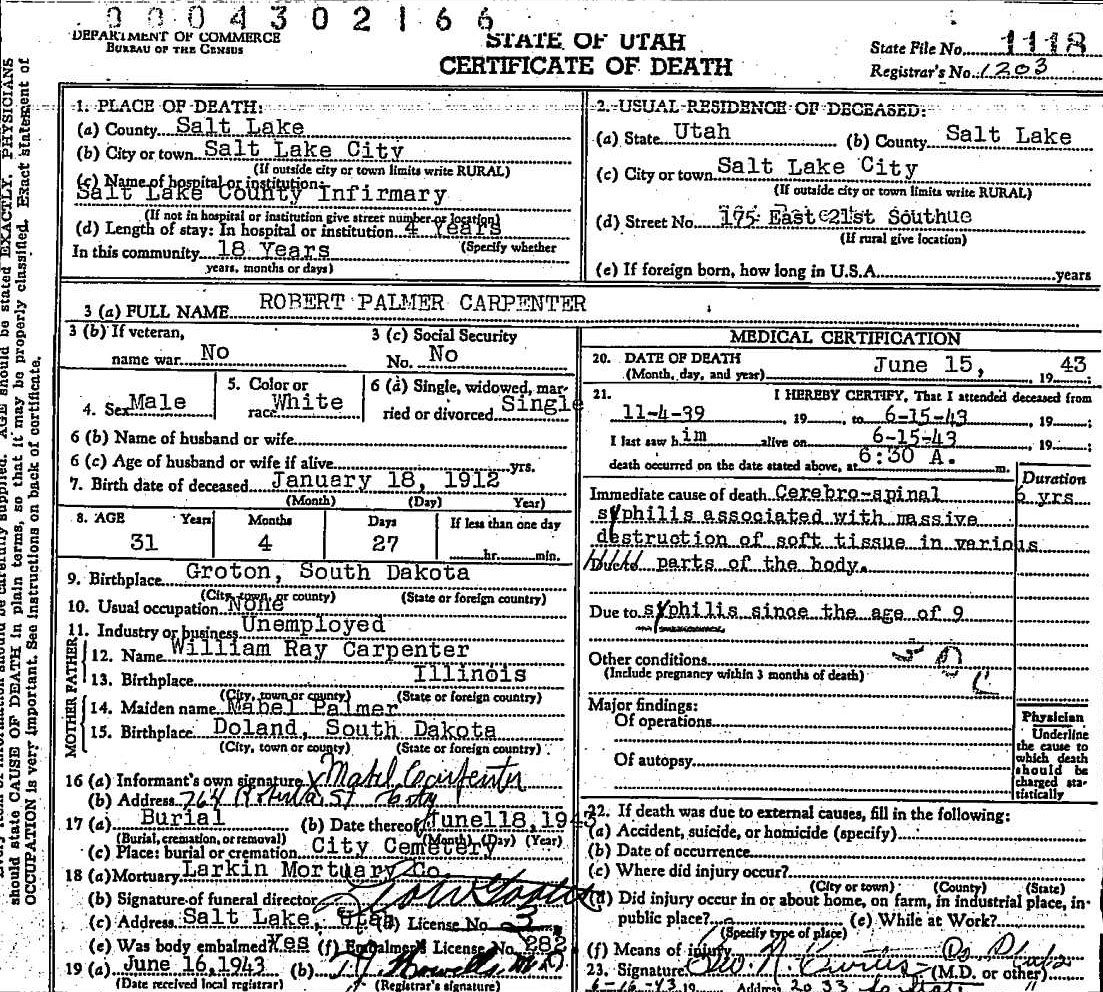 0004302166
DEPARTMENT OF COMMERCE
BUREAU OF THE CENSUS
STATE OF UTAH
CERTIFICATE OF DEATH
State File No. 1118
Registrar's No. 1203
should state CAUSE OF DEATH in plain terms, so that it may be properly classified. Exact statement of
OCCUPATION is very important. See instructions on back of certificate.
1. PLACE OF DEATH:
(a) County Salt Lake
(b) City or town Salt Lake City
(If outside city or town limits write RURAL)
(c) Name of hospital or institution:
Salt Lake County Infirmary
(If not in hospital or institution give street number or location)
(d) Length of stay: In hospital or institution 4 Years
(Specify whether
In this community 18 Years
years, months or days)
2. USUAL RESIDENCE OF DECEASED:
(a) State Utah (b) County Salt Lake
(c) City or town Salt Lake City
(If outside city or town limits write RURAL)
(d) Street No. 175 East 21st Southue
(If rural give location)
(e) If foreign born, how long in U.S.A. years
3 (a) FULL NAME ROBERT PALMER CARPENTER
3 (b) If veteran,
name war No
3 (c) Social Security
No. No
4. Sex Male
5. Color or
race White
6 (a) Single, widowed, mar-
ried or divorced Single
6 (b) Name of husband or wife
6 (c) Age of husband or wife if alive yrs.
7. Birth date of deceased January 18, 1912
(Month) (Day) Year)
8. AGE Years Months Days If less than one day
31 4 27 hr. min.
9. Birthplace Groton, South Dakota
(City, town, or county) (State or foreign country)
10. Usual occupation None
11. Industry or business Unemployed
FATHER
12. Name William Ray Carpenter
13. Birthplace Illinois
(City, town or county) (State or foreign country)
MOTHER
14. Maiden name Mabel Palmer
15. Birthplace Doland, South Dakota
(City, town or county) (State or foreign country)
16 (a) Informant's own signature x Mabel Carpenter
(b) Address 764 St City
17 (a) Burial (b) Date thereof June 18, 1943
(Burial, cremation, or removal) (Month) (Day) (Year)
(c) Place: burial or cremation City Cemetery
18 (a) Mortuary Larkin Mortuary Co.
(b) Signature of funeral director
(c) Address Salt Lake, Utah (d) License No. 3
(e) Was body embalmed? Yes (f) Embalmer's License No. 282
19 (a) June 16, 1943 (b)
(Date received local registrar) (Registrar's signature)
MEDICAL CERTIFICATION
20. DATE OF DEATH
(Month, day, and year) June 15, 19 43
21. I HEREBY CERTIFY, That I attended deceased from
11-4-39, 19 , to 6-15-43, 19 ;
I last saw him alive on 6-15-43, 19 ;
death occurred on the date stated above, at 6:30 A. m.
Duration
Immediate cause of death Cerebro-spinal 6 yrs
syphilis associated with massive
destruction of soft tissue in various
parts of the body.
Due to syphilis since the age of 9
Other conditions
(Include pregnancy within 3 months of death)
Major findings:
Of operations
Of autopsy
Physician
Underline
the cause to
which death
should be
charged sta-
tistically
22. If death was due to external causes, fill in the following:
(a) Accident, suicide, or homicide (specify)
(b) Date of occurrence
(c) Where did injury occur?
(City or town) (County) (State)
(d) Did injury occur in or about home, on farm, in industrial place, in-
public place? (e) While at Work?
(Specify type of place)
(f) Means of injury
23. Signature Geo. N. Curtis (M.D. or other)
6-16-43 19 Address 2033 So State